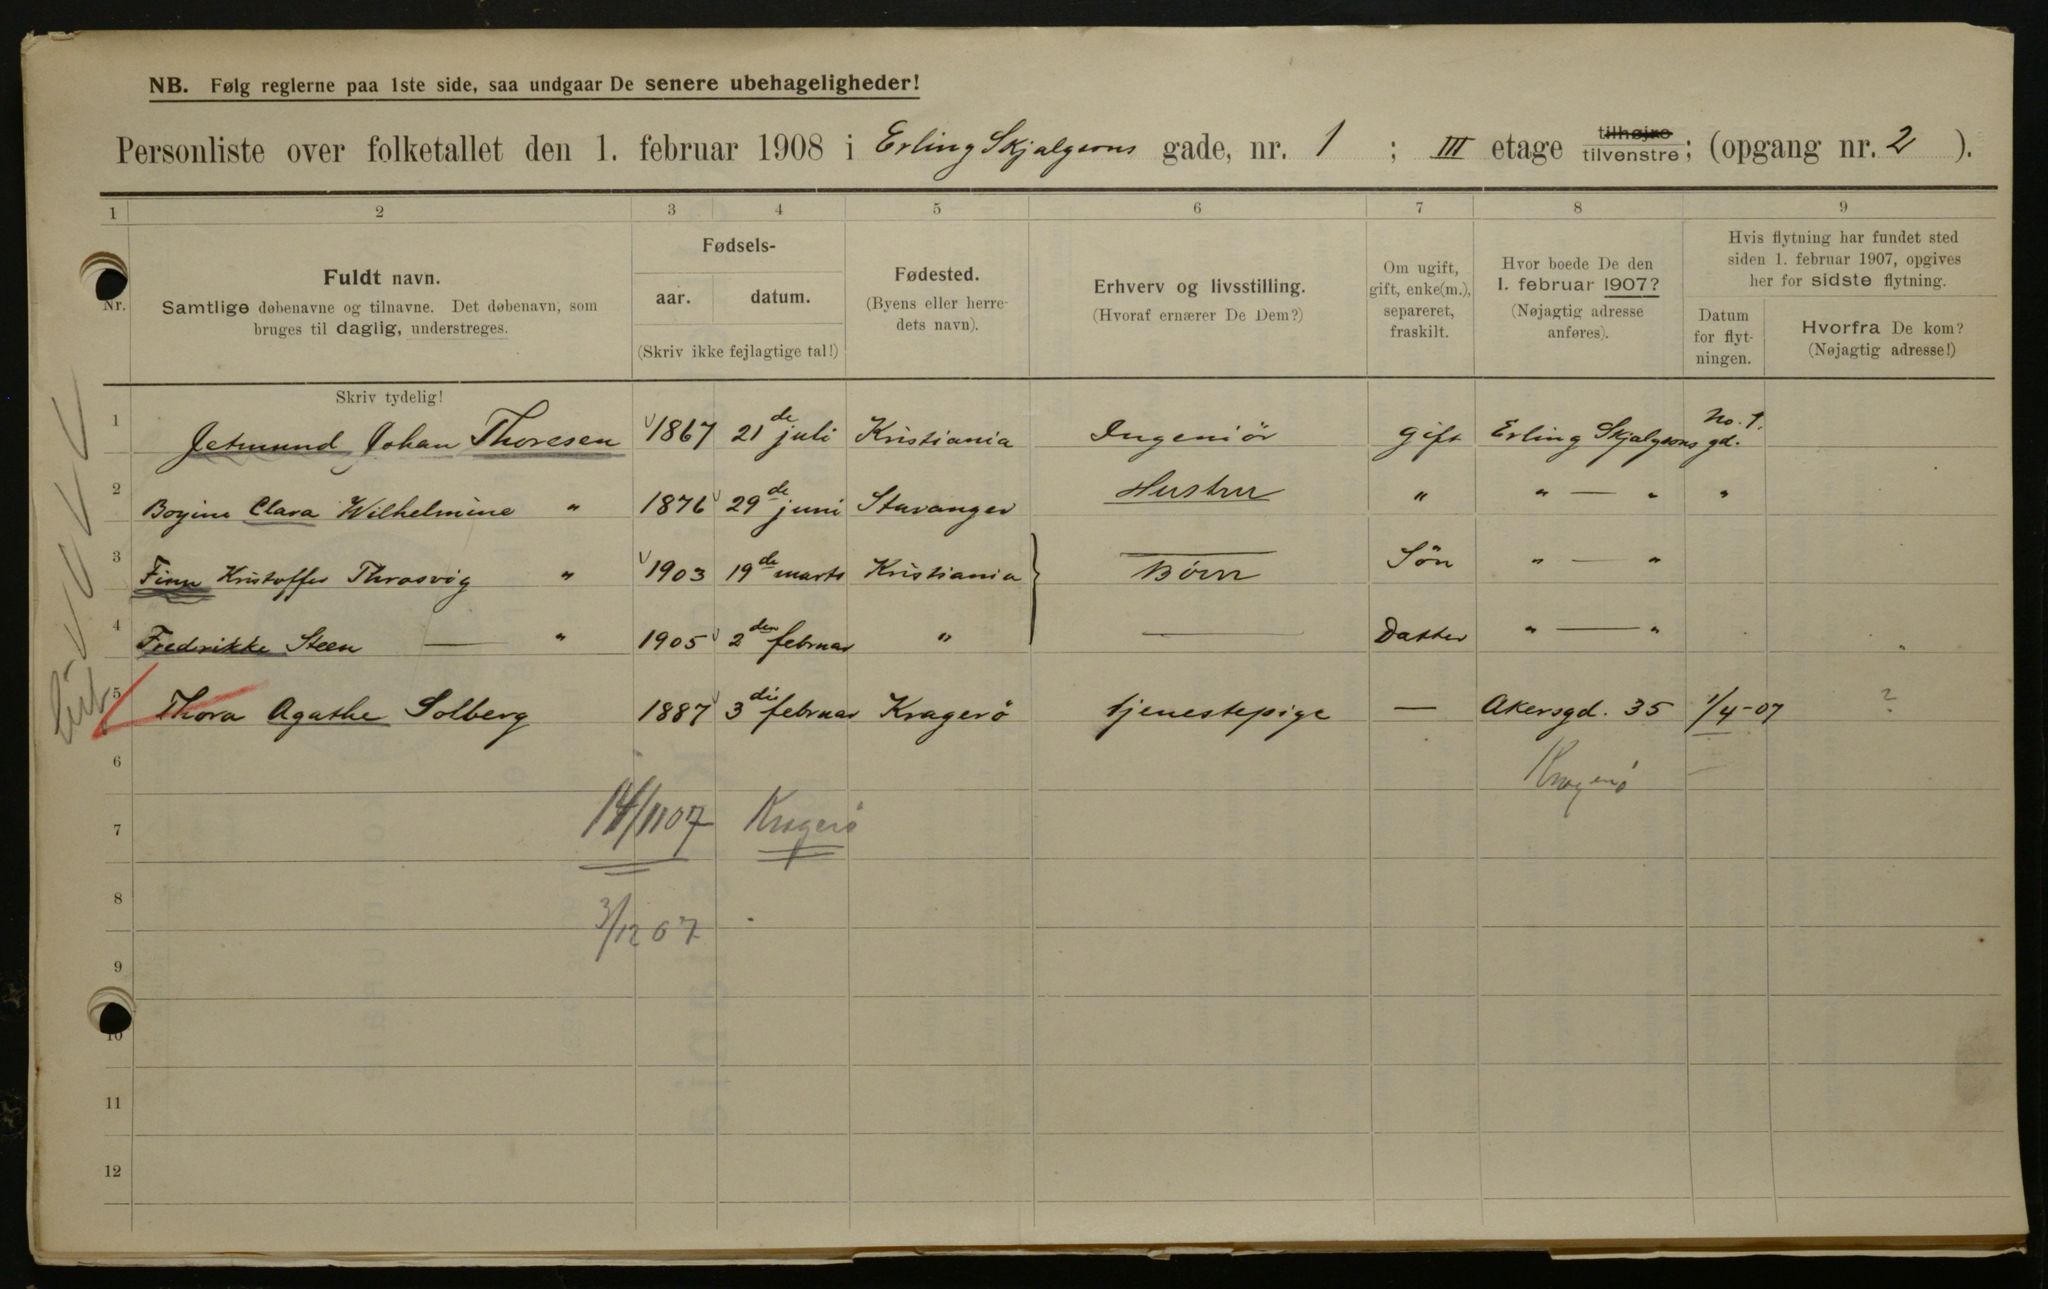 NB. Følg reglerne paa 1ste side, saa undgaar De senere ubehageligheder!
Personliste over folketallet den 1. februar 1908 i Erling Skjalgsons gade, nr. 1 ; III etage tilhøjre tilvenstre; (opgang nr. 2 ).
1 2 3 4 5 6 7 8 9
Nr.
Fuldt navn.
Samtlige døbenavne og tilnavne. Det døbenavn, som
bruges til daglig, understreges.
Fødsels-
aar. datum.
(Skriv ikke fejlagtige tal!)
Fødested.
(Byens eller herre-
dets navn).
Erhverv og livsstilling.
(Hvoraf ernærer De Dem?)
Om ugift,
gift, enke(m.),
separeret,
fraskilt.
Hvor boede De den
1. februar 1907?
(Nøjagtig adresse
anføres).
Hvis flytning har fundet sted
siden 1. februar 1907, opgives
her for sidste flytning.
Datum
for flyt-
ningen.
Hvorfra De kom?
(Nøjagtig adresse!)
Skriv tydelig!
1 Jetmund Johan Thoresen 1867 21de juli Kristiania Ingeniör gift Erling Skjalgsons gd. No. 1.
2 Clara Wilhelmine " 1876 29de juni Stavanger Hustru " " — " "
3 Finn Kristoffer Throsvig " 1903 19de marts Kristiania Börn Sön " — "
4 Fredrikke Steen — " 1905 2den februar " Datter " — "
5 Thora Agathe Solberg 1887 3die februar Kragerö tjenestepige — Akersgd. 35 1/4-07 ?
6 Kragerö
7 14/11 07 Kragerö
8 3/12 07
9
10
11
12